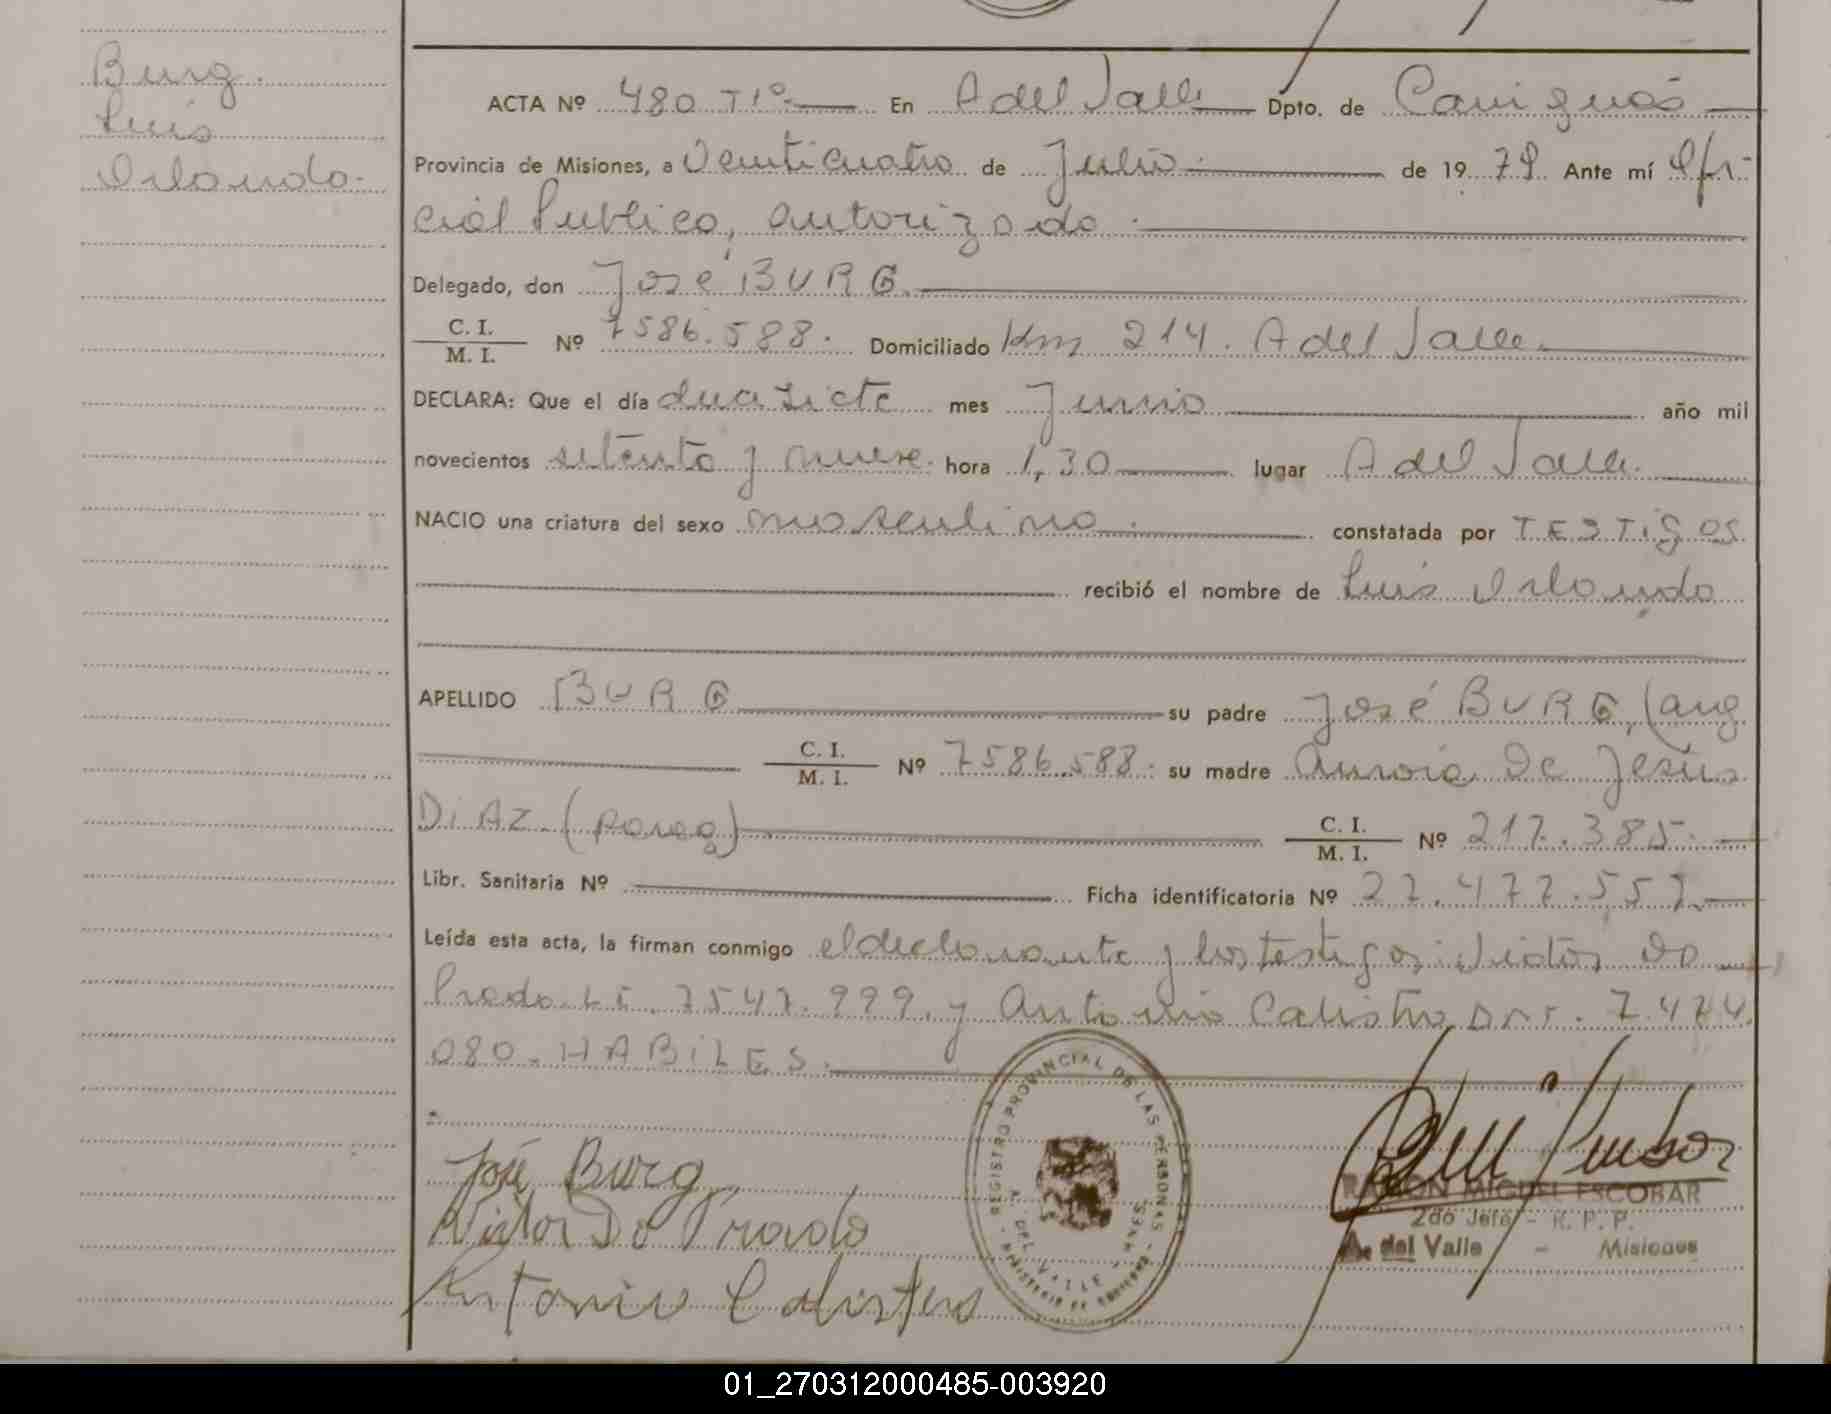 Burg.
Luis
Orlando.
ACTA Nº 480 T1º En A del Valle Dpto. de Cainguás
Provincia de Misiones, a Veinticuatro de Julio de 1979 Ante mí Ofi-
cial Publico, autorizado.
Delegado, don José BURG.
C. I. / M. I. Nº 7586.588. Domiciliado Km 214. A del Valle.
DECLARA: Que el día diez siete mes Junio año mil
novecientos setenta y nueve. hora 1,30 lugar A del Valle.
NACIO una criatura del sexo masculino. constatada por TESTigos
recibió el nombre de Luis Orlando
APELLIDO BURG su padre José BURG, (arg
C. I. / M. I. Nº 7586.588. su madre Aurora De Jesús
DiAZ (parag) C. I. / M. I. Nº 217.385.
Libr. Sanitaria Nº Ficha identificatoria Nº 27.477.557.
Leída esta acta, la firman conmigo el declarante y los testigos: Victor Do
Prado L.E. 7547.999. y Antonio Calistro D.N.I. 7.474.
080. HABiLES.
José Burg
Victor Do Prado
Antonio Calistro
REGISTRO PROVINCIAL DE LAS PERSONAS
A. DEL VALLE - MNES.
MINISTERIO DE GOBIERNO
RAMON MIGUEL ESCOBAR
2do Jefe - R. P. P.
A. del Valle - Misiones
01_270312000485-003920